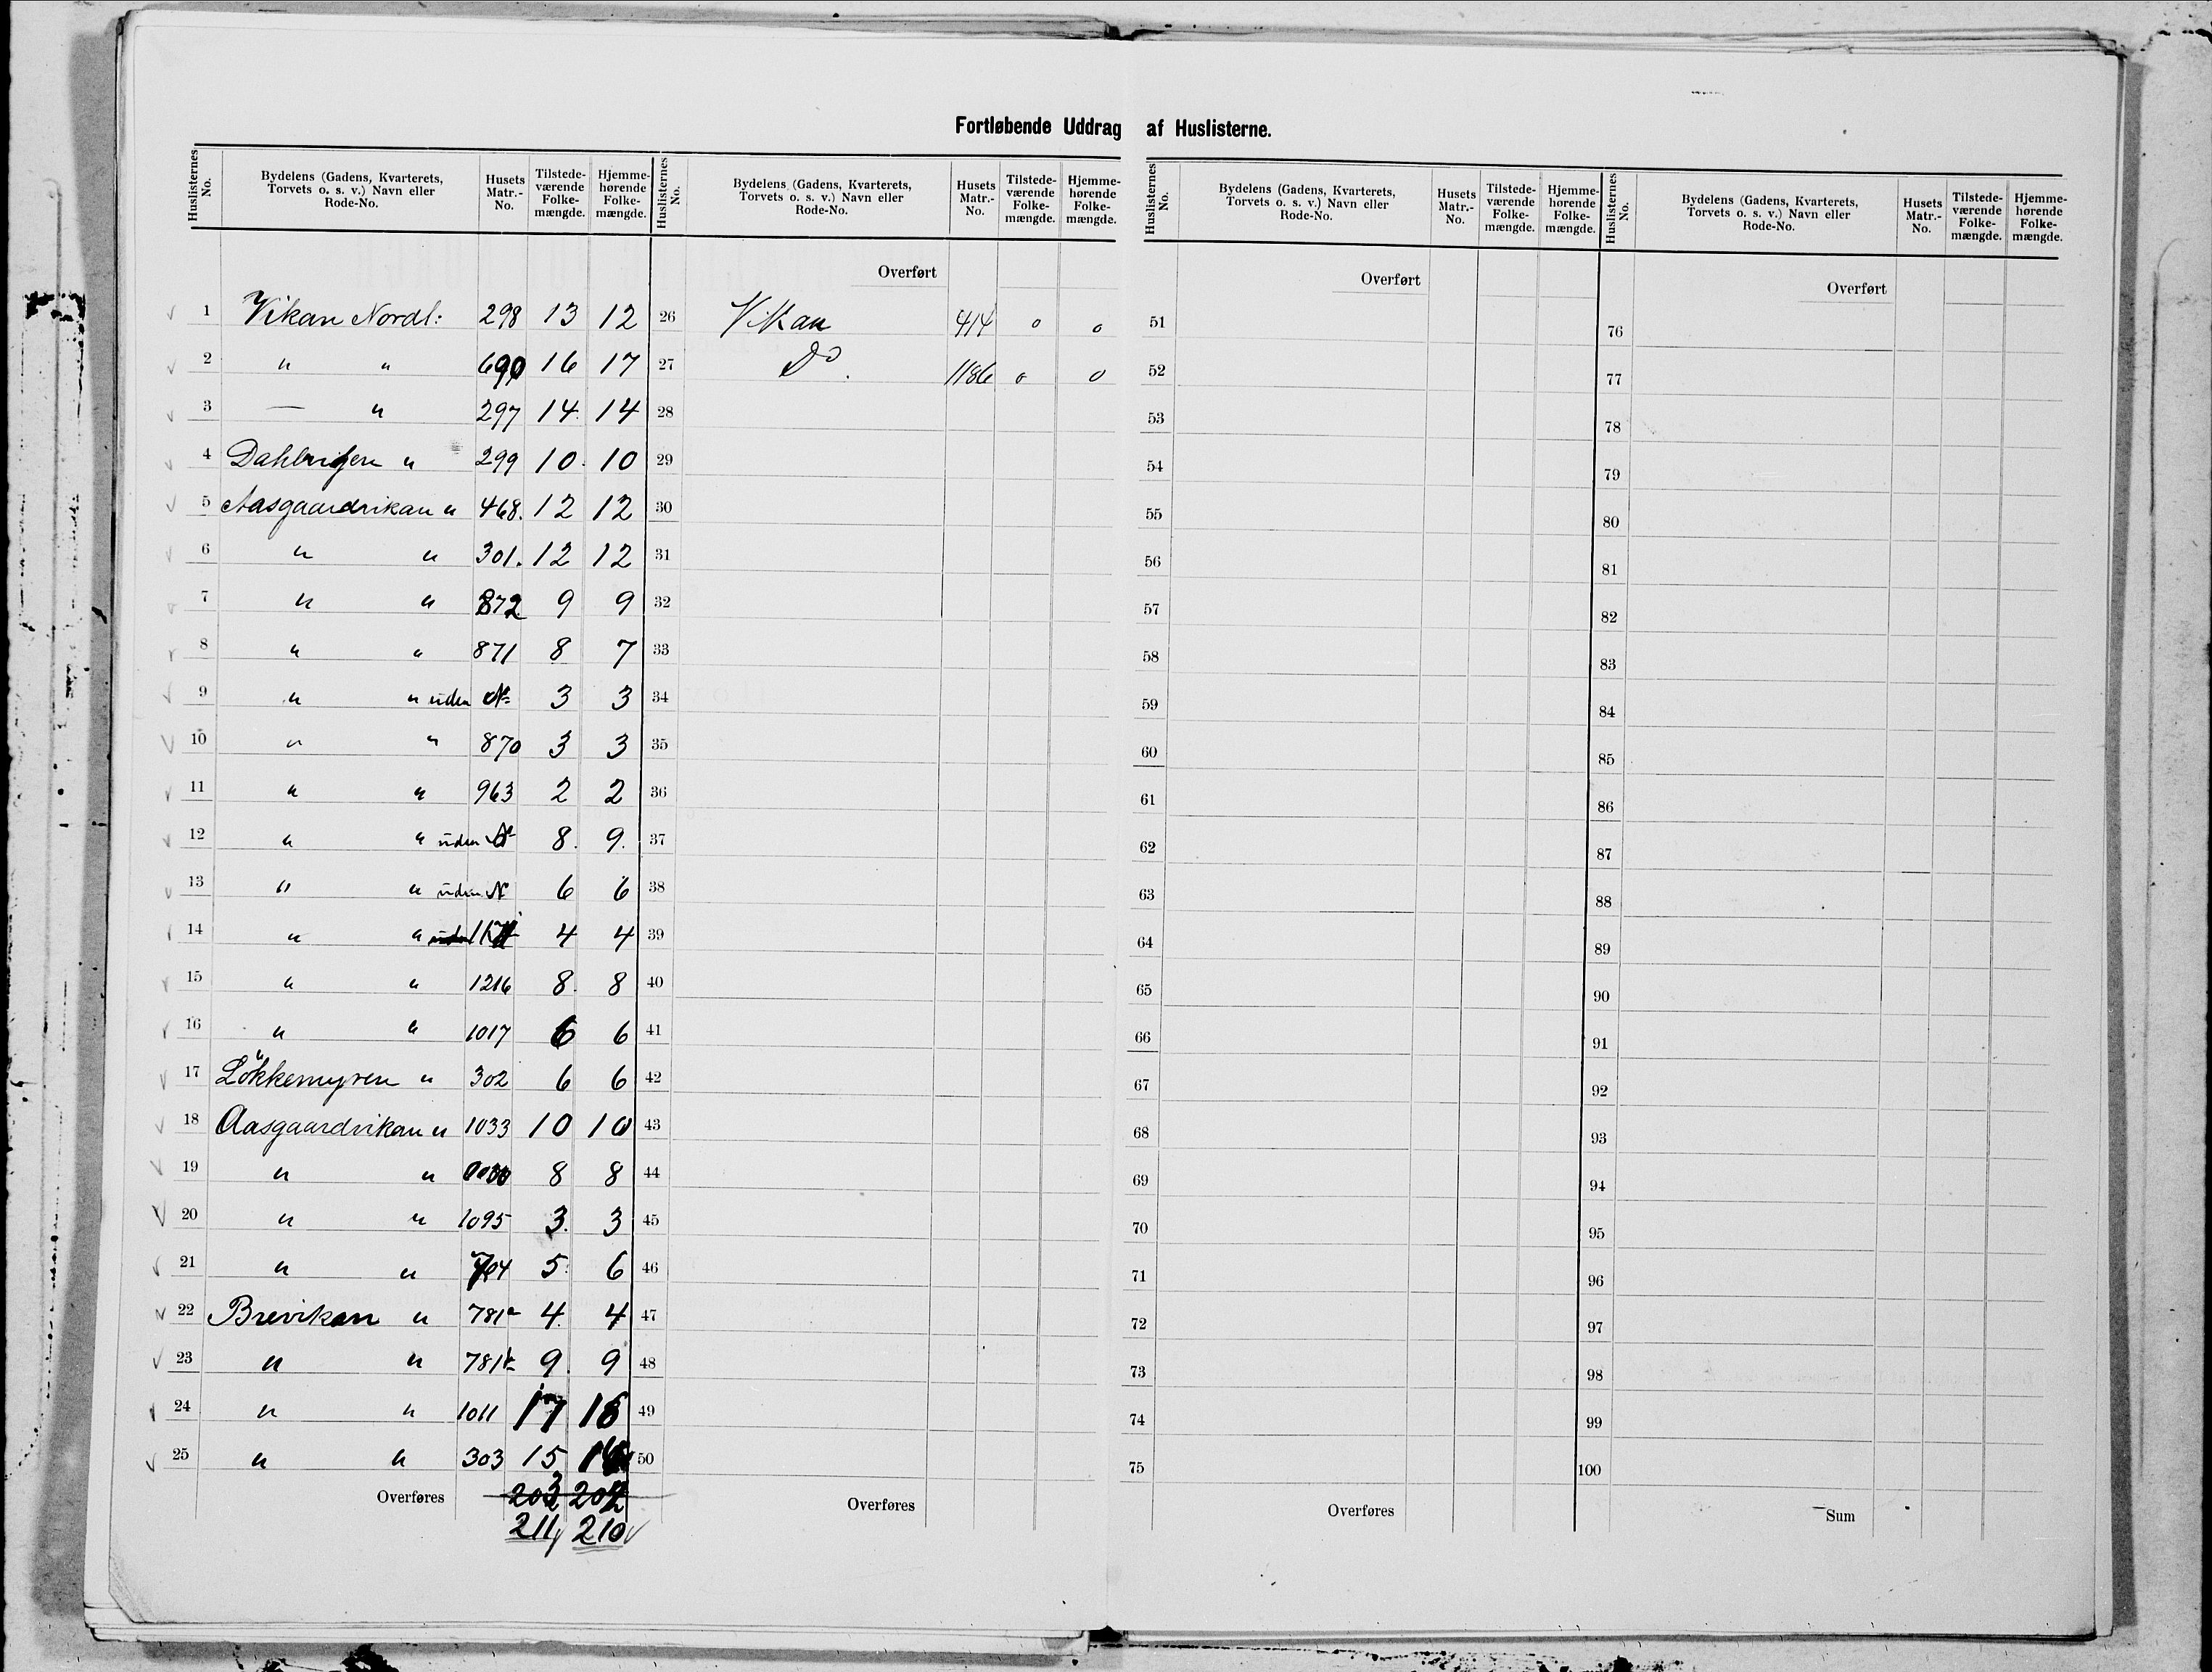 Fortløbende Uddrag af Huslisterne.
Huslisternes No. Bydelens (Gadens, Kvarterets, Torvets o. s. v.) Navn eller Rode-No. Husets Matr.-No. Tilstedeværende Folkemængde. Hjemmehørende Folkemængde.
Huslisternes No. Bydelens (Gadens, Kvarterets, Torvets o. s. v.) Navn eller Rode-No. Husets Matr.-No. Tilstedeværende Folkemængde. Hjemmehørende Folkemængde.
Huslisternes No. Bydelens (Gadens, Kvarterets, Torvets o. s. v.) Navn eller Rode-No. Husets Matr.-No. Tilstedeværende Folkemængde. Hjemmehørende Folkemængde.
Huslisternes No. Bydelens (Gadens, Kvarterets, Torvets o. s. v.) Navn eller Rode-No. Husets Matr.-No. Tilstedeværende Folkemængde. Hjemmehørende Folkemængde.
1 Vikan Nordl: 298 13 12
2 " " 690 16 17
3 — " 297 14 14
4 " 299 10 10
5 Aasgaardvikan " 468. 12 12
6 " " 301. 12 12
7 " " 872 9 9
8 " " 871 8 7
9 " " uden No 3 3
10 " " 870 3 3
11 " " 963 2 2
12 " " uden No 8. 9.
13 " " uden No 6 6
14 " " 4 4
15 " " 1216 8. 8
16 " " 1017 6 6
17 Lökkemyren " 302 6 6
18 Aasgaardvikan " 1033 10 10
19 " " 8 8
20 " " 1095 3. 3
21 " " 5. 6
22 Brevikan " 781a 4. 4
23 " " 781b 9. 9
24 " " 1011 17 16
25 " " 303 15
Overføres 203 202
211 210
Overført
26 Vikan 414 0 0
27 Do. 1186 0 0
28
29
30
31
32
33
34
35
36
37
38
39
40
41
42
43
44
45
46
47
48
49
50
Overføres
Overført
51
52
53
54
55
56
57
58
59
60
61
62
63
64
65
66
67
68
69
70
71
72
73
74
75
Overføres
Overført
76
77
78
79
80
81
82
83
84
85
86
87
88
89
90
91
92
93
94
95
96
97
98
99
100
Sum